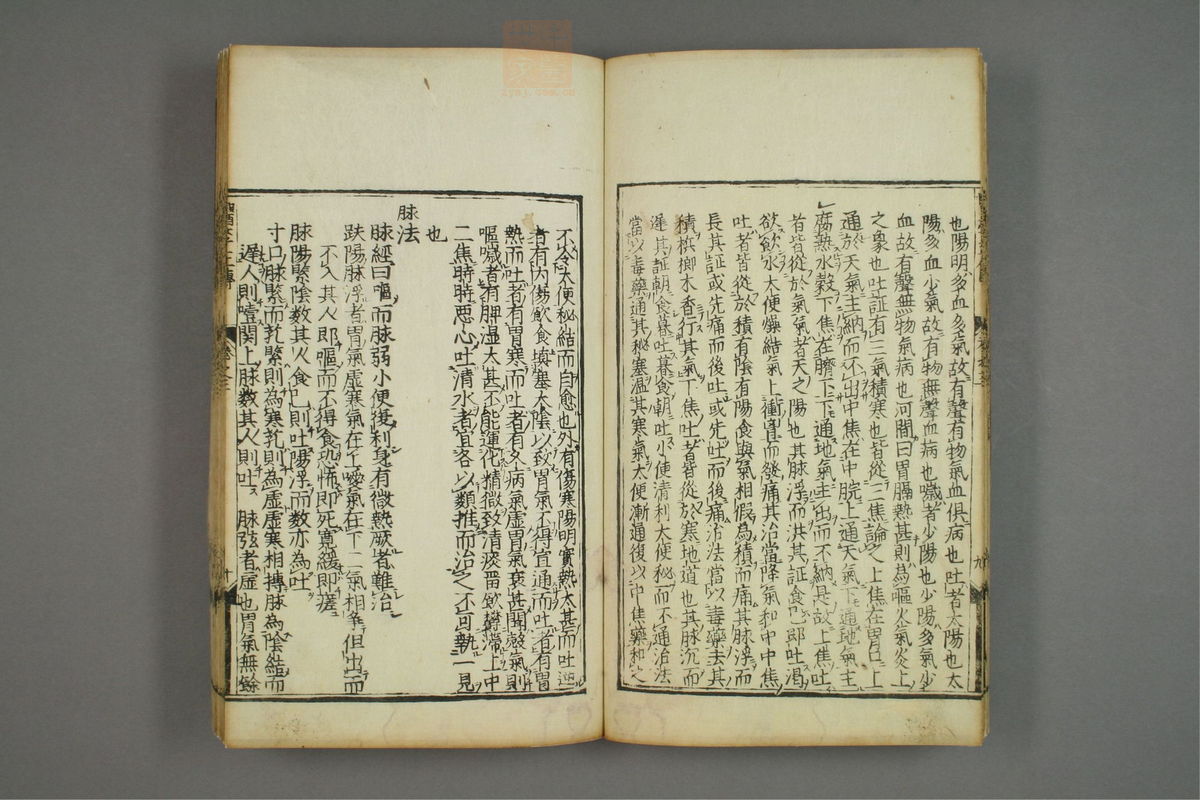 也陽明多血多氣故有聲有物氣血俱病也吐者太陽也太
陽多血少氣故有物無聲血病也噦者少陽也少陽多氣少
血故有聲無物氣病也河間曰胃膈熱甚則為嘔火氣炎上
之象也吐証有三氣積寒也皆從三焦論之上焦在胃口上
通於天氣主納而不出中焦在中脘上通天氣下通地氣主
腐熱水穀下焦在臍下下通地氣主出而不納是故上焦吐
者皆從於氣氣者天之陽也其脉浮而洪其証食已即吐渴
欲飲水大便燥結氣上衝胃而發痛其治當降氣和中中焦
吐者皆從於積有陰有陽食與氣相假為積而痛其脉浮而
長其証或先痛而後吐或先吐而後痛治法當以毒藥去其
積槟榔木香行其氣下焦吐者皆從於寒地道也其脉沉而
遲其証朝食暮吐暮食朝吐小便清利大便秘而不通治法
當以毒藥通其秘塞温其寒氣大便漸通復以中焦藥和之
不令大便秘結而自愈也外有傷寒陽明實熱太甚而吐逆
者有内傷飲食填塞太陰以致胃氣不得宣通而吐者有胃
熱而吐者有胃寒而吐者有久病氣虚胃氣衰甚聞穀氣則
嘔噦者有脾湿太甚不能運化精微致清痰畱飲欝滯上中
二焦時時惡心吐清水者宜各以類推而治之不可執一見
也
脉法
脉經曰嘔而脉弱小便復利身有微熱厥者難治
趺陽脉浮者胃氣虚寒氣在上噯氣在下二氣相争但出而
不入其人即嘔而不得食恐怖即死寛緩即瘥
脉陽緊陰数其人食已則吐陽浮而数亦為吐
寸口脉緊而芤緊則為寒芤則為虚虚寒相搏脉為陰結而
遲人則噎関上脉数其人則吐 脉弦者虚也胃氣無餘